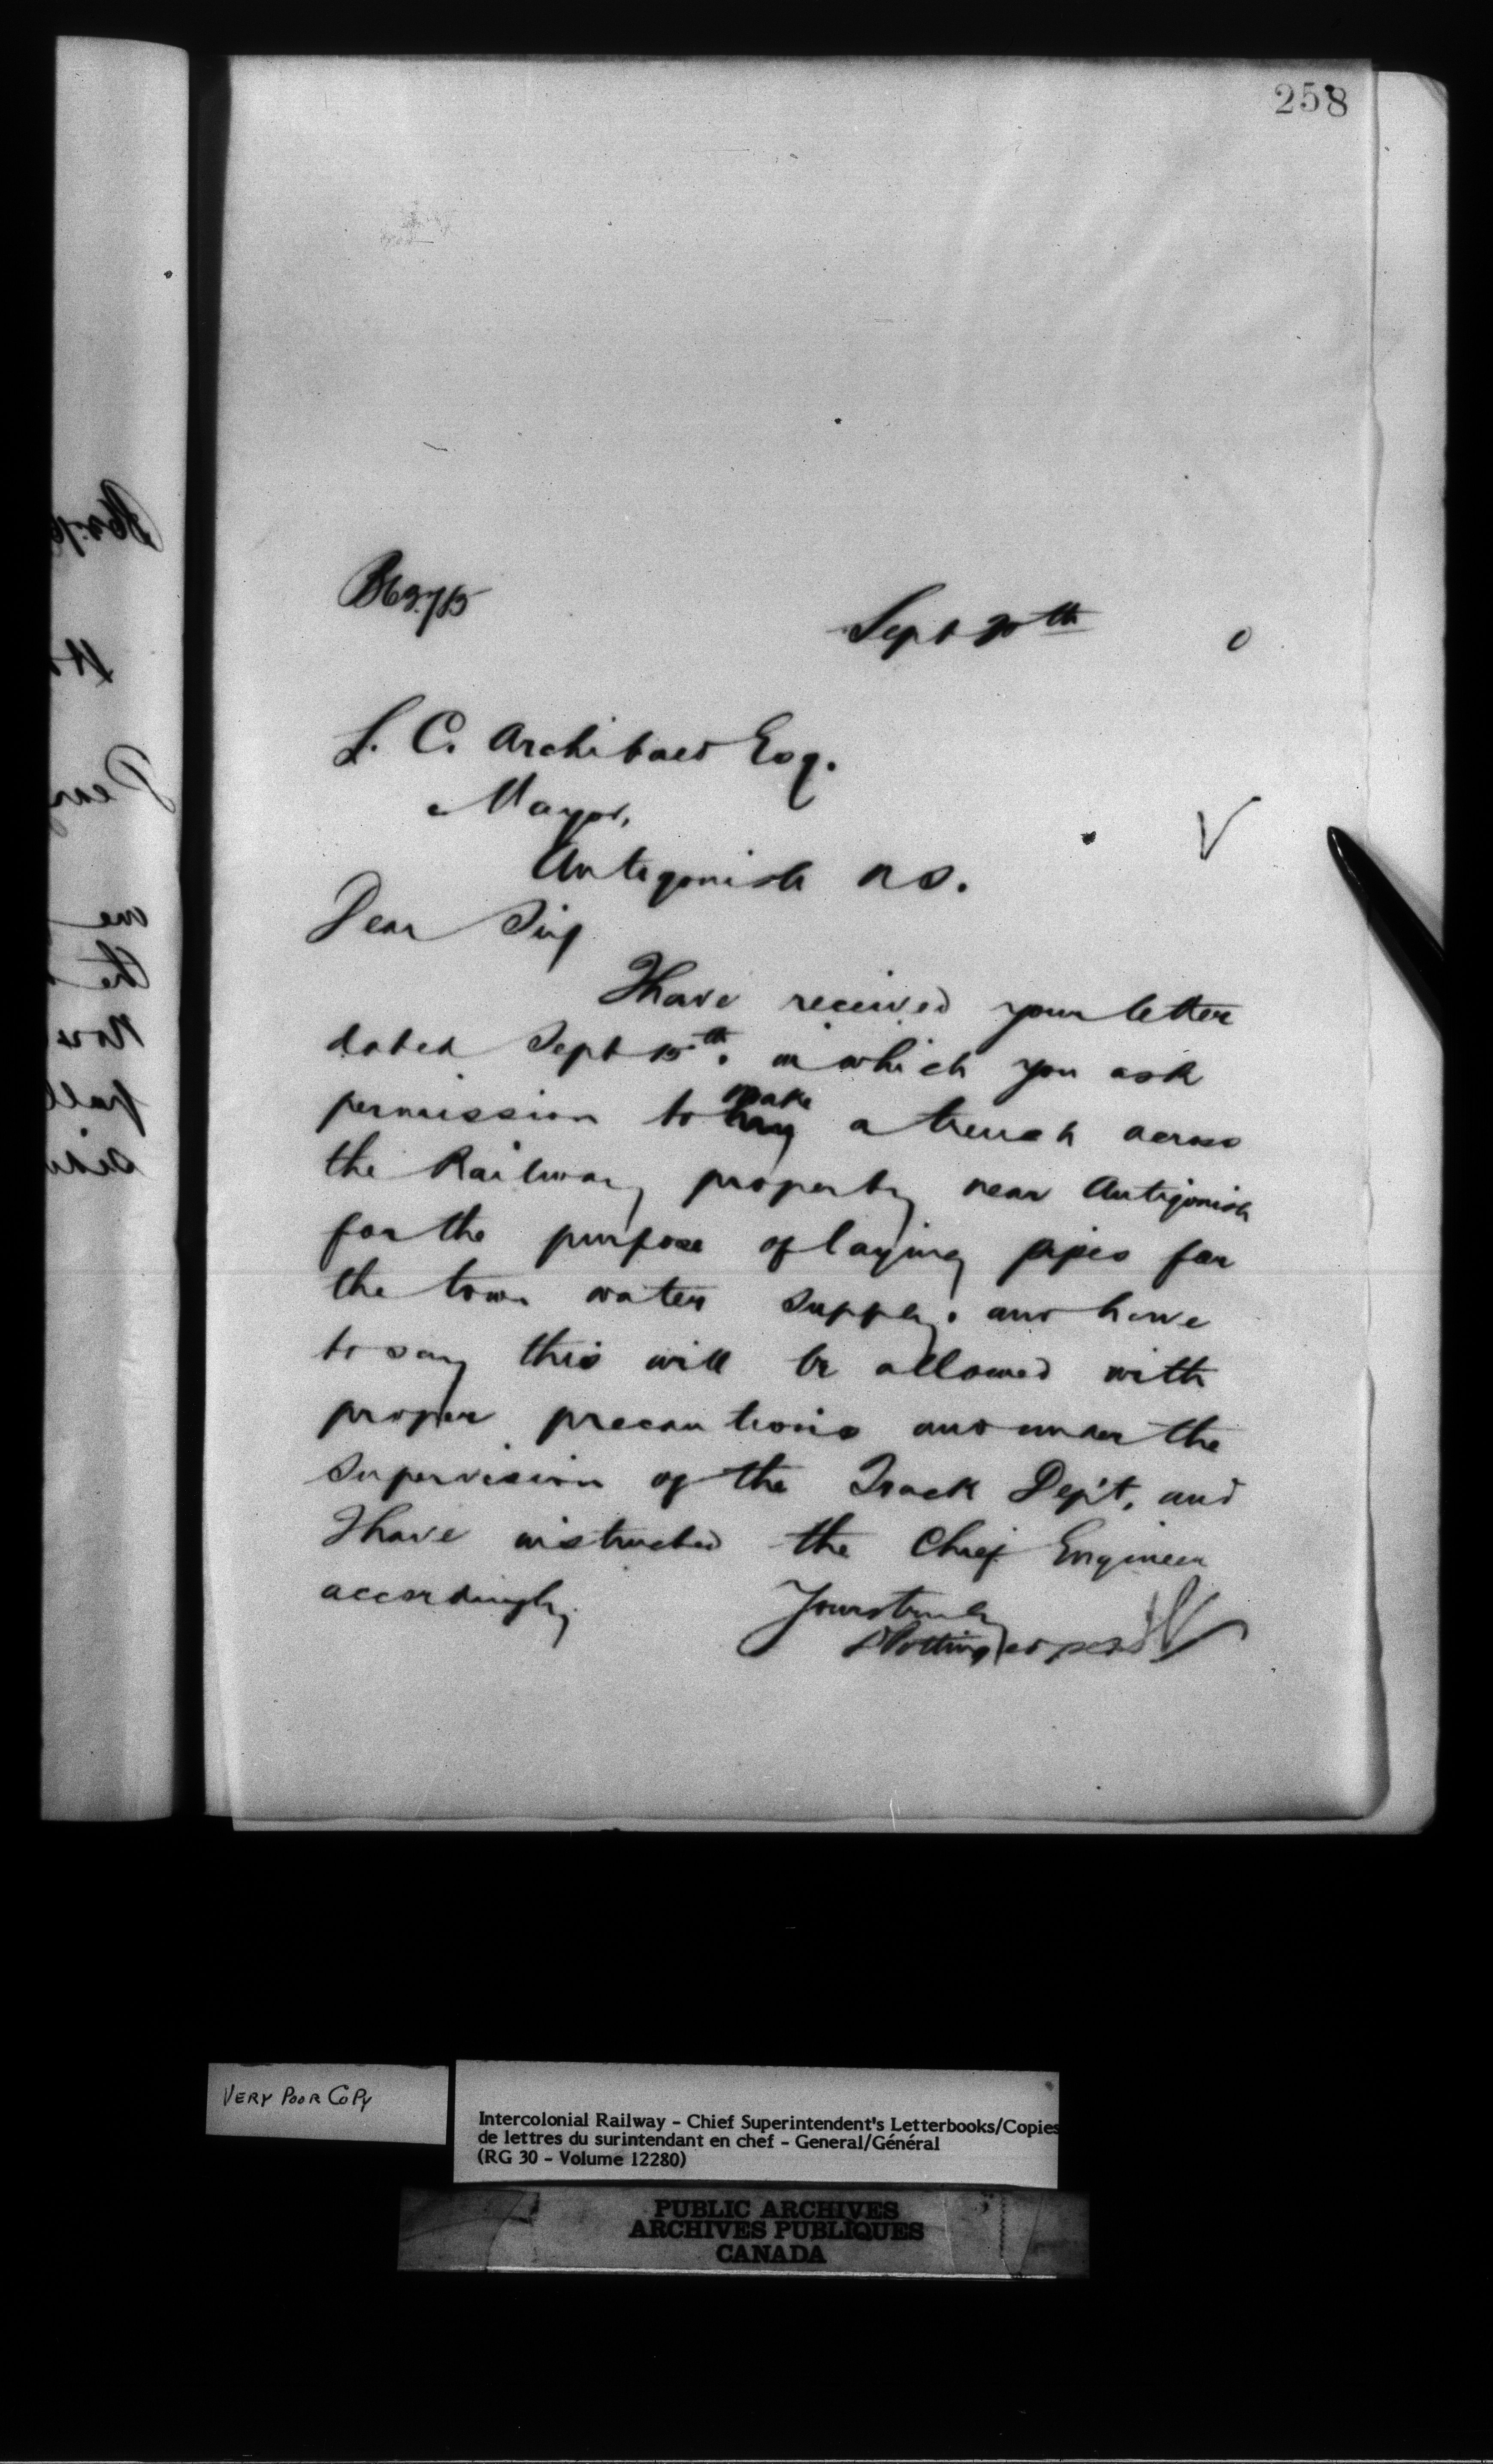 258
B63715
Sept 20th 0
L. C. Archibald Esq.
Mayor,
Antigonish N.S.
Dear Sir,
I have received your letter
dated Sept 15th. in which you ask
permission to make a trench across
the Railway property near Antigonish
for the purpose of laying pipes for
the town water supply. and have
to say this will be allowed with
proper precautions and under the
supervision of the Track Dep't, and
I have instructed the Chief Engineer
accordingly.
Yours truly
D Pottinger
VERY POOR COPY
Intercolonial Railway - Chief Superintendent's Letterbooks/Copies
de lettres du surintendant en chef - General/Général
(RG 30 - Volume 12280)
PUBLIC ARCHIVES
ARCHIVES PUBLIQUES
CANADA